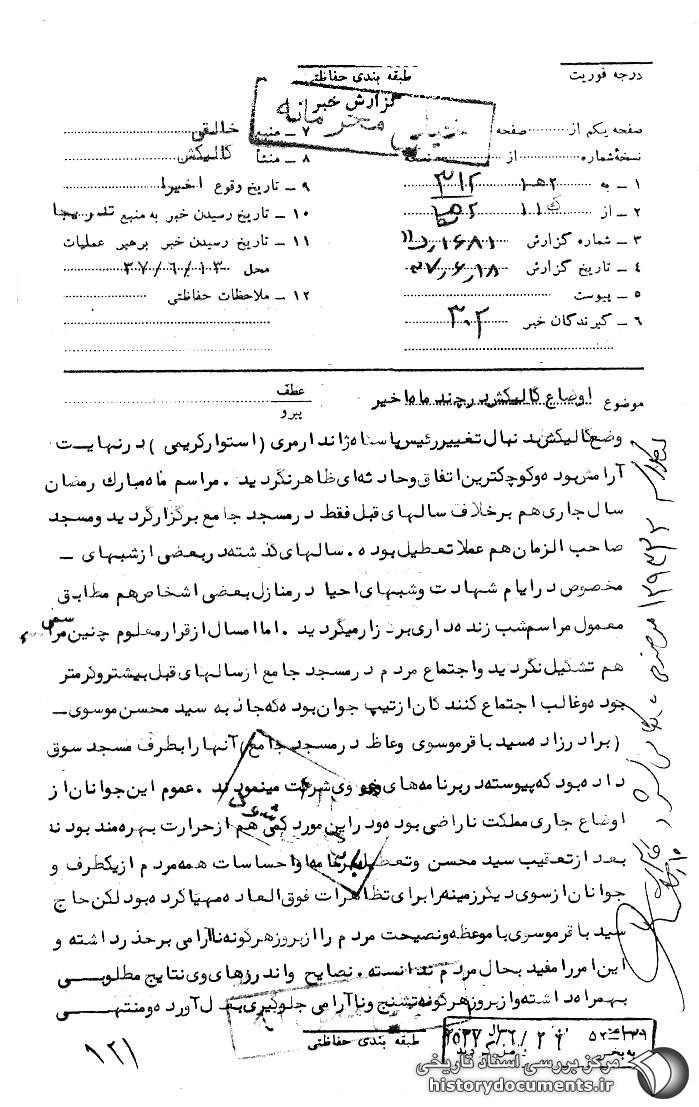 درجه فوریت
طبقه بندی حفاظتی
گزارش خبر
خیلی محرمانه
صفحه یکم از صفحه
نسخه شماره از نسخه
۱ – به ۲ ه ۱ ۳۱۲
۲ – از
۳ – شماره گزارش
۴ – تاریخ گزارش ۳۷٫۶٫۱۸
۵ – پیوست
۶ – گیرندگان خبر ۳۰۲
۷ – منبع خالقی
۸ – منشأ گالیکش
۹ – تاریخ وقوع اخیرا
۱۰ – تاریخ رسیدن خبر به منبع تدریجا
۱۱ – تاریخ رسیدن خبر برهبر عملیات
محل ۳۷/۶/۱۳
۱۲ – ملاحظات حفاظتی
موضوع اوضاع گالیکش در چند ماه اخیر
عطف
پیرو
وضع گالیکش بدنبال تغییر رئیس پاسگاه ژاندارمری (استوار کریمی) در نهایت
آرامش بوده و کوچکترین اتفاق و حادثه ای ظاهر نگردید. مراسم ماه مبارک رمضان
سال جاری هم برخلاف سالهای قبل فقط در مسجد جامع برگزار گردید و مسجد
صاحب الزمان هم عملا تعطیل بوده. سالهای گذشته در بعضی از شبهای –
مخصوص در ایام شهادت و شبهای احیا در منازل بعضی اشخاص هم مطابق
معمول مراسم شب زنده داری برگزار میگردید. اما امسال از قرار معلوم چنین مراسمی
هم تشکیل نگردید و اجتماع مردم در مسجد جامع از سالهای قبل بیشتر و گرمتر
بوده و غالب اجتماع کنندگان از تیپ جوان بوده که جاذبه سید محسن موسوی –
(برادرزاده سید باقر موسوی وعاظ در مسجد جامع) آنها را بطرف مسجد سوق
داده بود که پیوسته در برنامه های وی شرکت مینمودند. عموم این جوانان از
اوضاع جاری مملکت ناراضی بوده و در این مورد کمی هم از حرارت بهره مند بودند
بعد از تعقیب سید محسن و تعطیل برنامه ها و احساسات همه مردم از یکطرف و
جوانان از سوی دیگر زمینه را برای تظاهرات فوق العاده مهیا کرده بود لکن حاج
سید باقر موسوی با موعظه و نصیحت مردم را از بروز هرگونه ناآرامی برحذر داشته و
این امر را مفید بحال مردم ندانسته. نصایح و اندرزهای وی نتایج مطلوبی
بهمراه داشته و از بروز هرگونه تشنج و ناآرامی جلوگیری بعمل آورده و منتهی
طبقه بندی حفاظتی
۱۲۱
مرکز بررسی اسناد تاریخی
historydocuments.ir